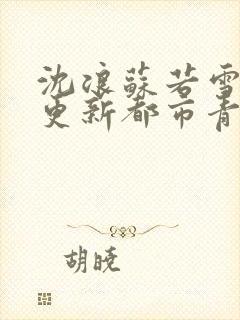 沈浪蘇若雪
更新都市青
胡曉